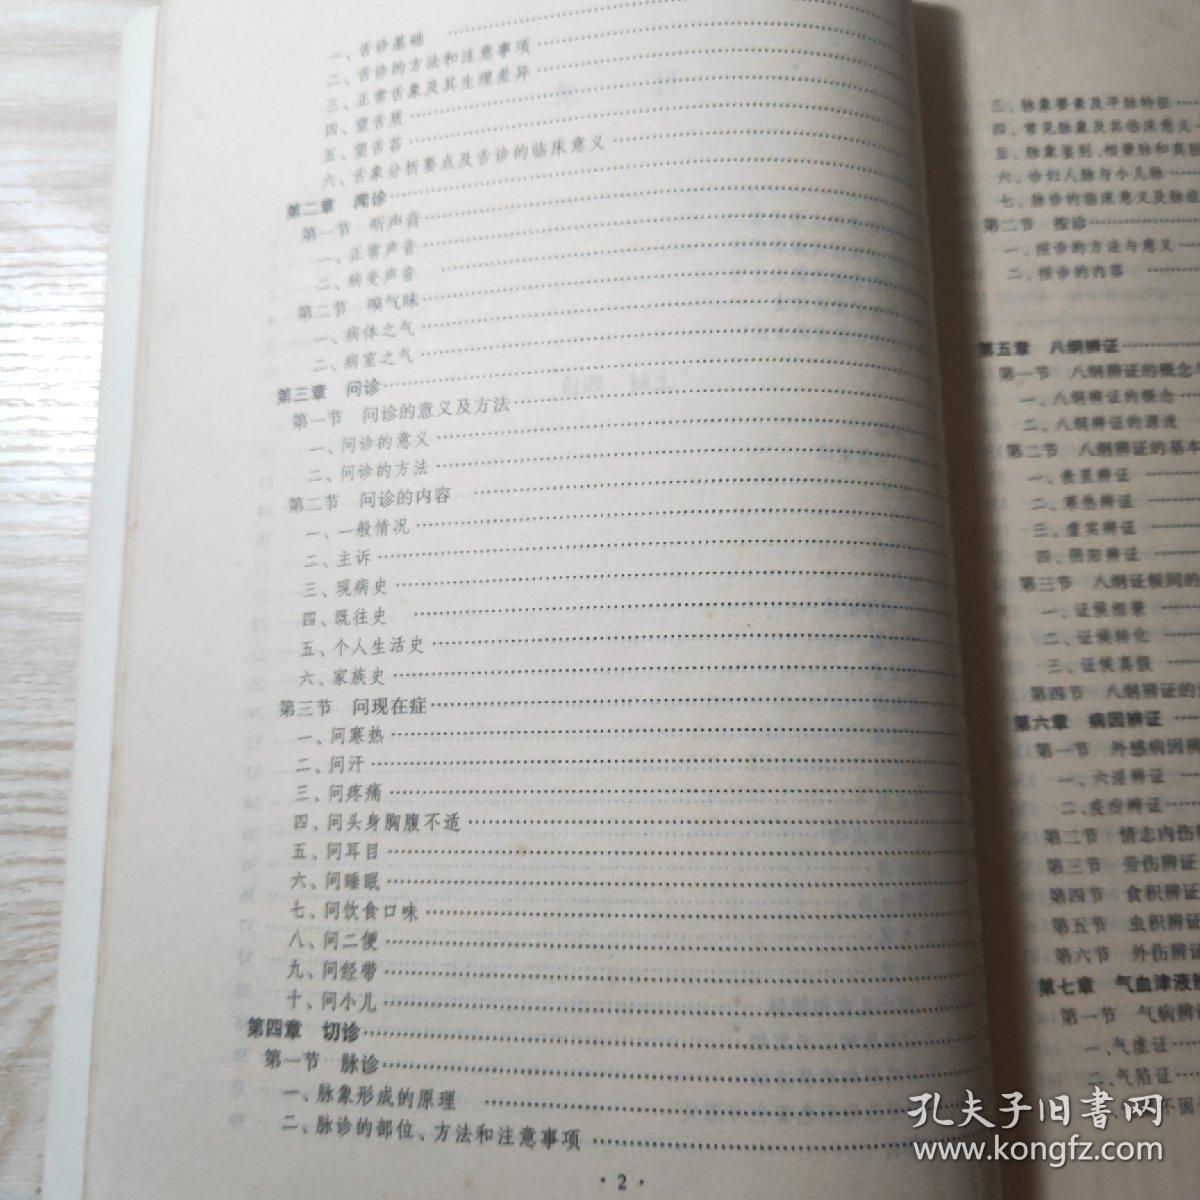 一、舌诊基础
二、舌诊的方法和注意事项
三、正常舌象及其生理差异
四、望舌质
五、望舌苔
六、舌象分析要点及舌诊的临床意义
第二章 闻诊
第一节 听声音
一、正常声音
二、病变声音
第二节 嗅气味
一、病体之气
二、病室之气
第三章 问诊
第一节 问诊的意义及方法
一、问诊的意义
二、问诊的方法
第二节 问诊的内容
一、一般情况
二、主诉
三、现病史
四、既往史
五、个人生活史
六、家族史
第三节 问现在症
一、问寒热
二、问汗
三、问疼痛
四、问头身胸腹不适
五、问耳目
六、问睡眠
七、问饮食口味
八、问二便
九、问经带
十、问小儿
第四章 切诊
第一节 脉诊
一、脉象形成的原理
二、脉诊的部位、方法和注意事项
· 2 ·
三、脉象要素及平脉特征
四、常见脉象及其临床意义
五、脉象鉴别、相兼脉和真脏
六、诊妇人脉与小儿脉
七、脉诊的临床意义及脉症
第二节 按诊
一、按诊的方法与意义
二、按诊的内容
第五章 八纲辨证
第一节 八纲辨证的概念与
一、八纲辨证的概念
二、八纲辨证的源流
第二节 八纲辨证的基本
一、表里辨证
二、寒热辨证
三、虚实辨证
四、阴阳辨证
第三节 八纲证候间的
一、证候相兼
二、证候转化
三、证候真假
第四节 八纲辨证的
第六章 病因辨证
第一节 外感病因辨
一、六淫辨证
二、疫疠辨证
第二节 情志内伤
第三节 劳伤辨证
第四节 食积辨证
第五节 虫积辨证
第六节 外伤辨证
第七章 气血津液辨
第一节 气病辨证
一、气虚证
二、气陷证
不固
孔夫子旧书网
www.kongfz.com